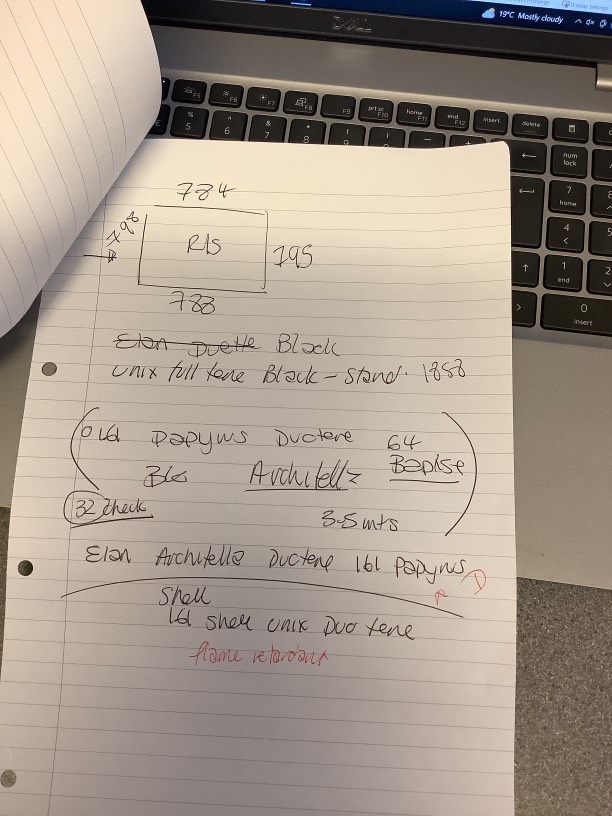 19°C Mostly cloudy
DELL
F5 F6 F7 F8 F9 prt sc F10 home F11 end F12 insert delete
% 5 ^ 6 & 7 * 8 ( 9 ) 0
num lock
7 home
4
1 end
2
0 insert
784
798
R/S
795
788
Elan Duette Black
Unix full tone Black - Stand. 1858
161 Papyrus Ductene 64
Architella
32 check
3.5 mts
Elan Architella Ductene 161 Papyrus
Shell
161 Shell Unix Duo tene
flame retardant